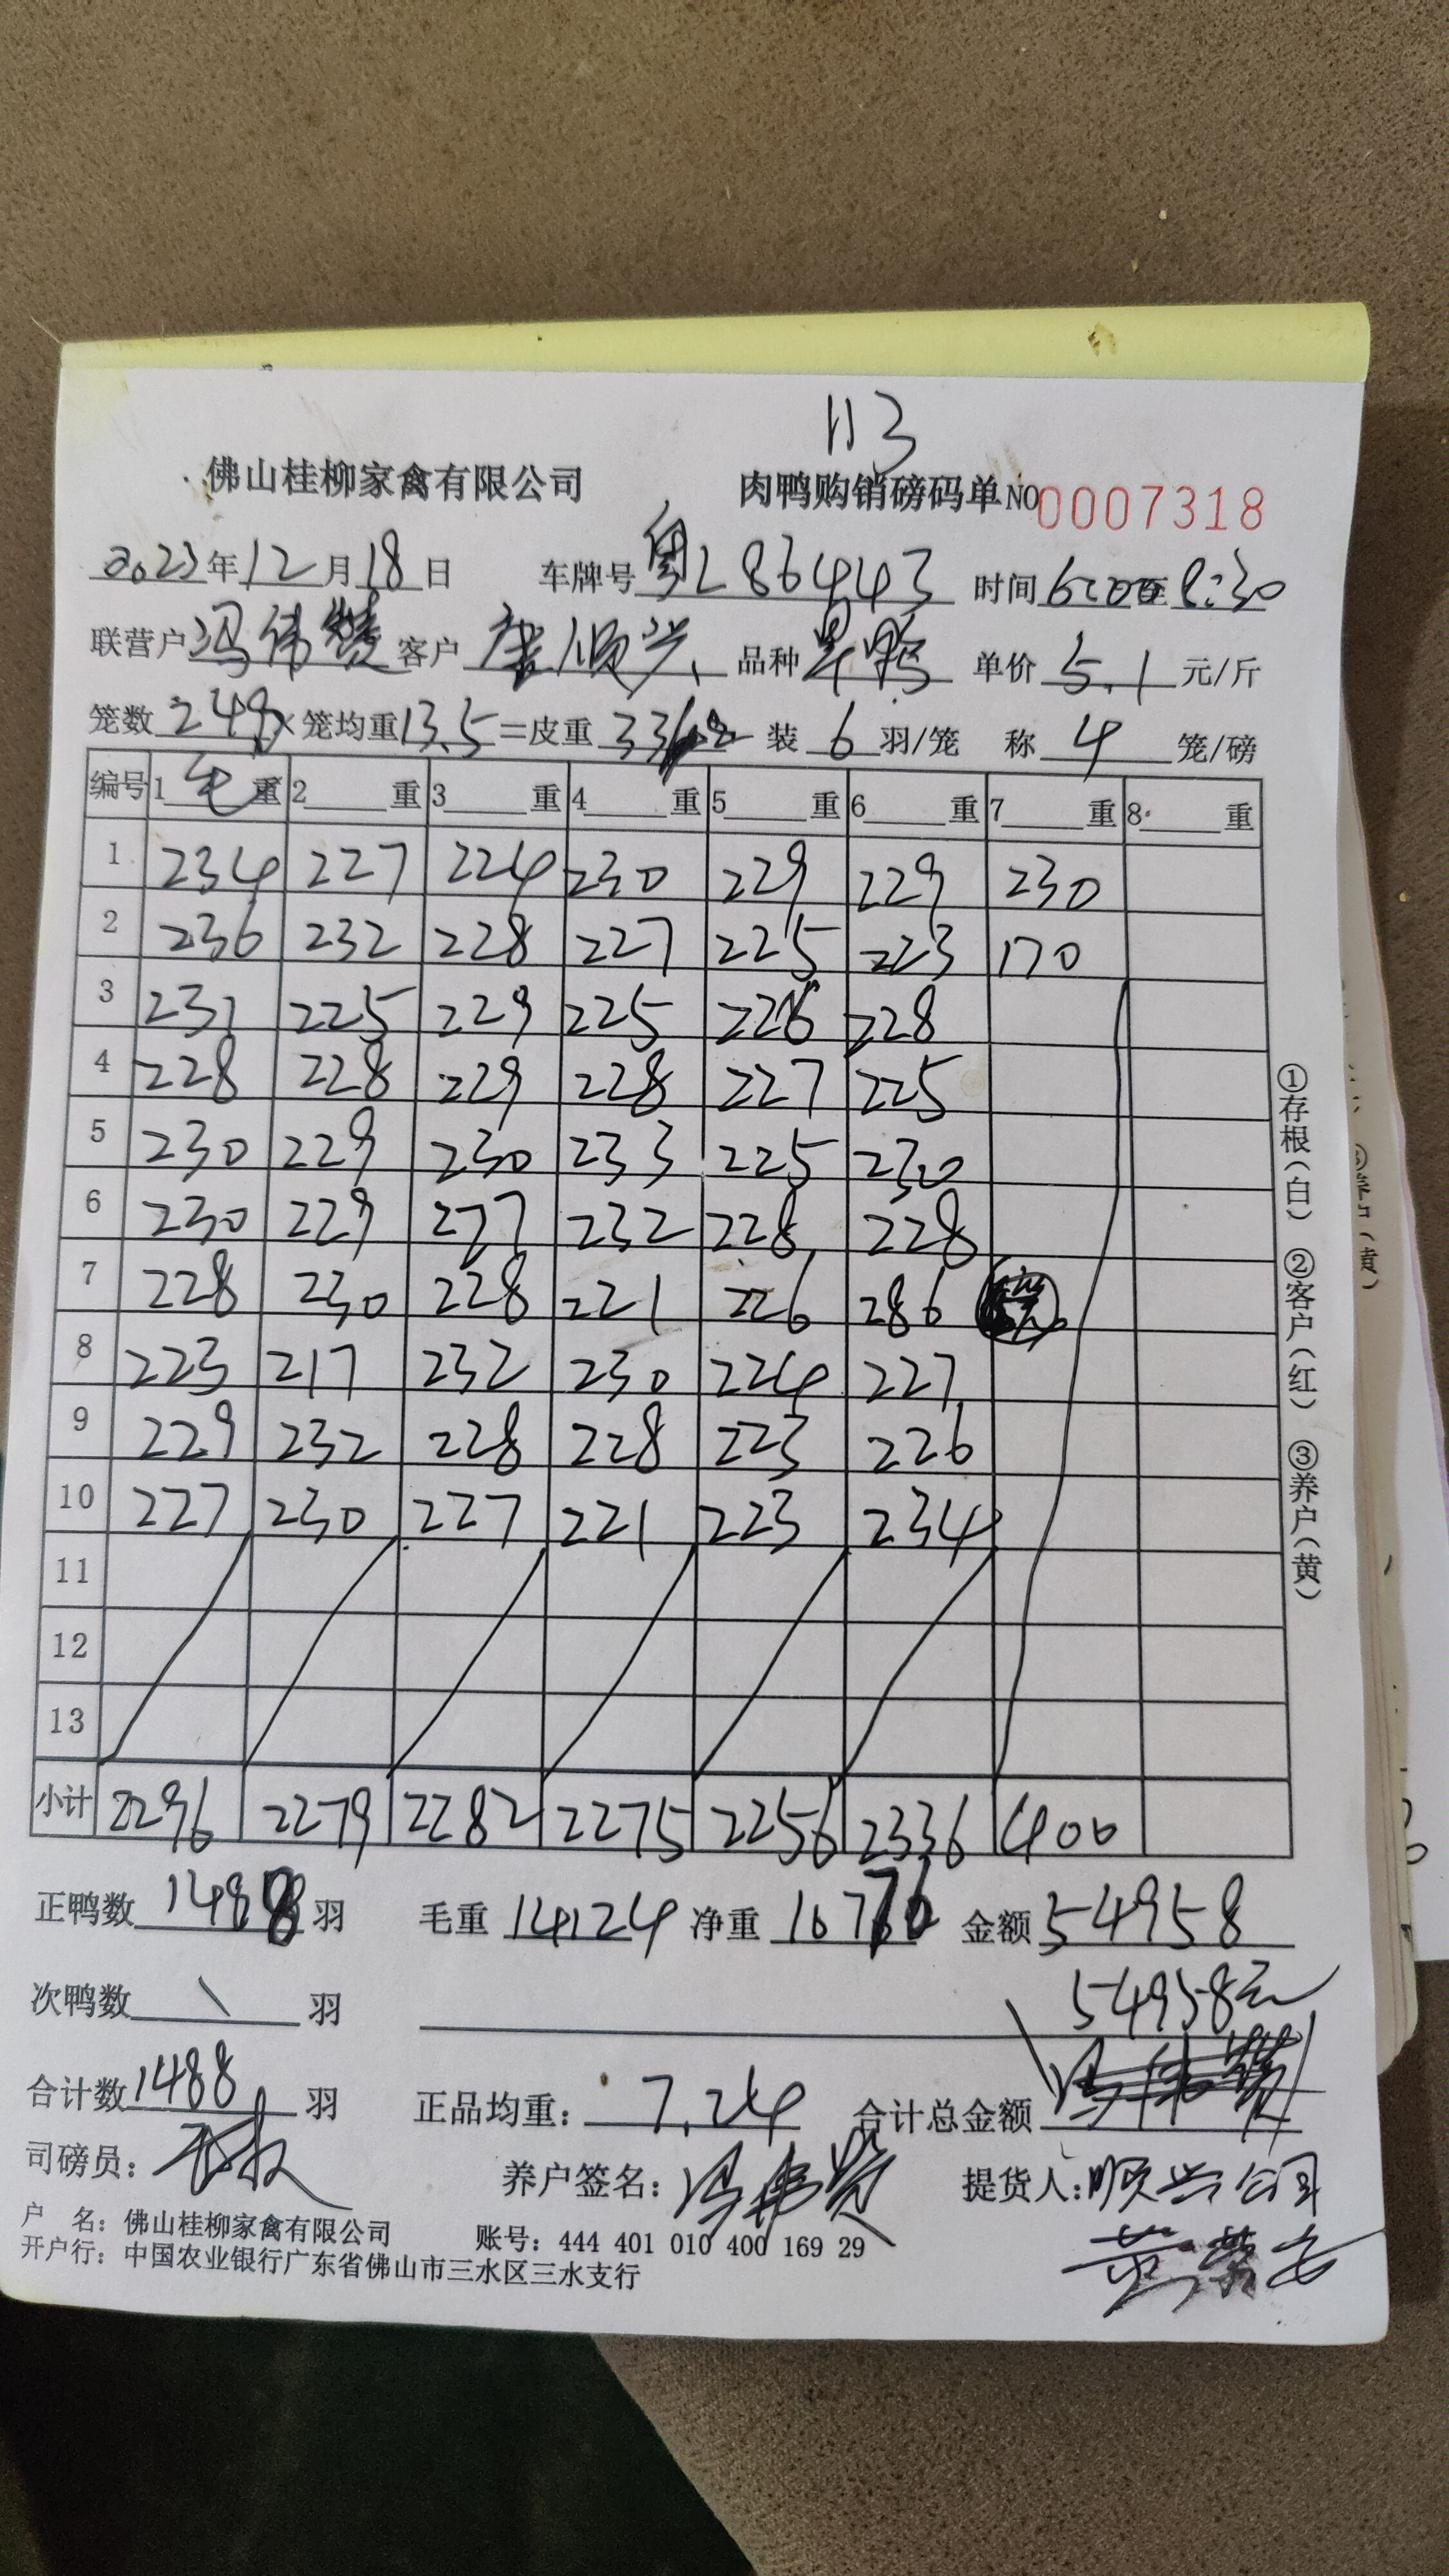 113
佛山桂柳家禽有限公司 肉鸭购销磅码单NO 0007318
2023年12月18日 车牌号粤L86443 时间6:00至8:30
联营户冯伟贤 客户 康顺兴 品种旱鸭 单价5.1元/斤
笼数248×笼均重13.5=皮重 装6羽/笼 称4笼/磅
编号 1毛重 2重 3重 4重 5重 6重 7重 8重
1 234 227 224 230 229 229 230
2 236 232 228 227 225 223 170
3 231 225 229 225 226 228
4 228 228 229 228 227 225
5 230 229 230 233 225 230
6 230 229 227 232 228 228
7 228 230 228 221 226 286
8 223 217 232 230 224 227
9 229 232 228 228 223 226
10 227 230 227 221 223 234
11
12
13
小计 2296 2279 2282 2275 2256 2336 400
正鸭数1488羽 毛重14124 净重10776 金额54958
次鸭数\羽 54958元
合计数1488羽 正品均重:7.24 合计总金额
司磅员: 养户签名:冯伟贤 提货人:顺兴公司
户 名:佛山桂柳家禽有限公司 账号:444 401 010 400 169 29
开户行:中国农业银行广东省佛山市三水区三水支行
①存根(白) ②客户(红) ③养户(黄)